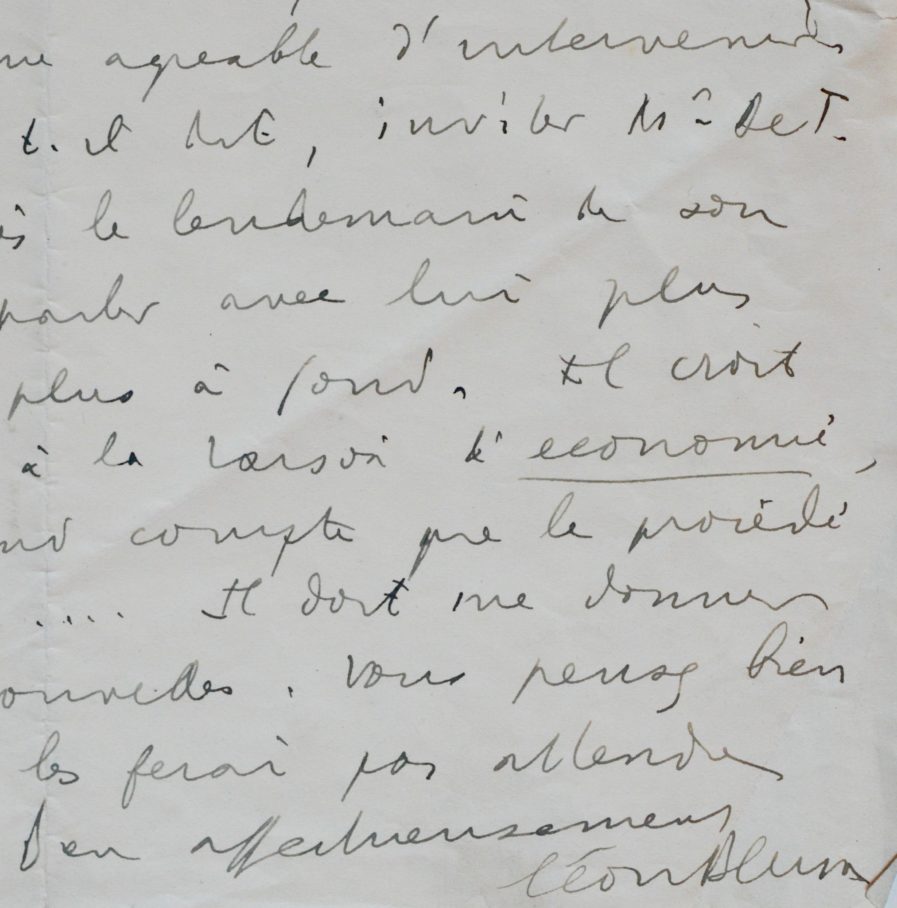 me agréable d'intervenir
t-il dit, inviter Mr de T.
ès le lendemain de son
parler avec lui plus
plus à fond. Il croit
à la raison d'économie,
nd compte que le procédé
.... Il doit me donner
ouvelles. Vous pensez bien
les ferai pas attendre
Bien affectueusement
Léon Blum